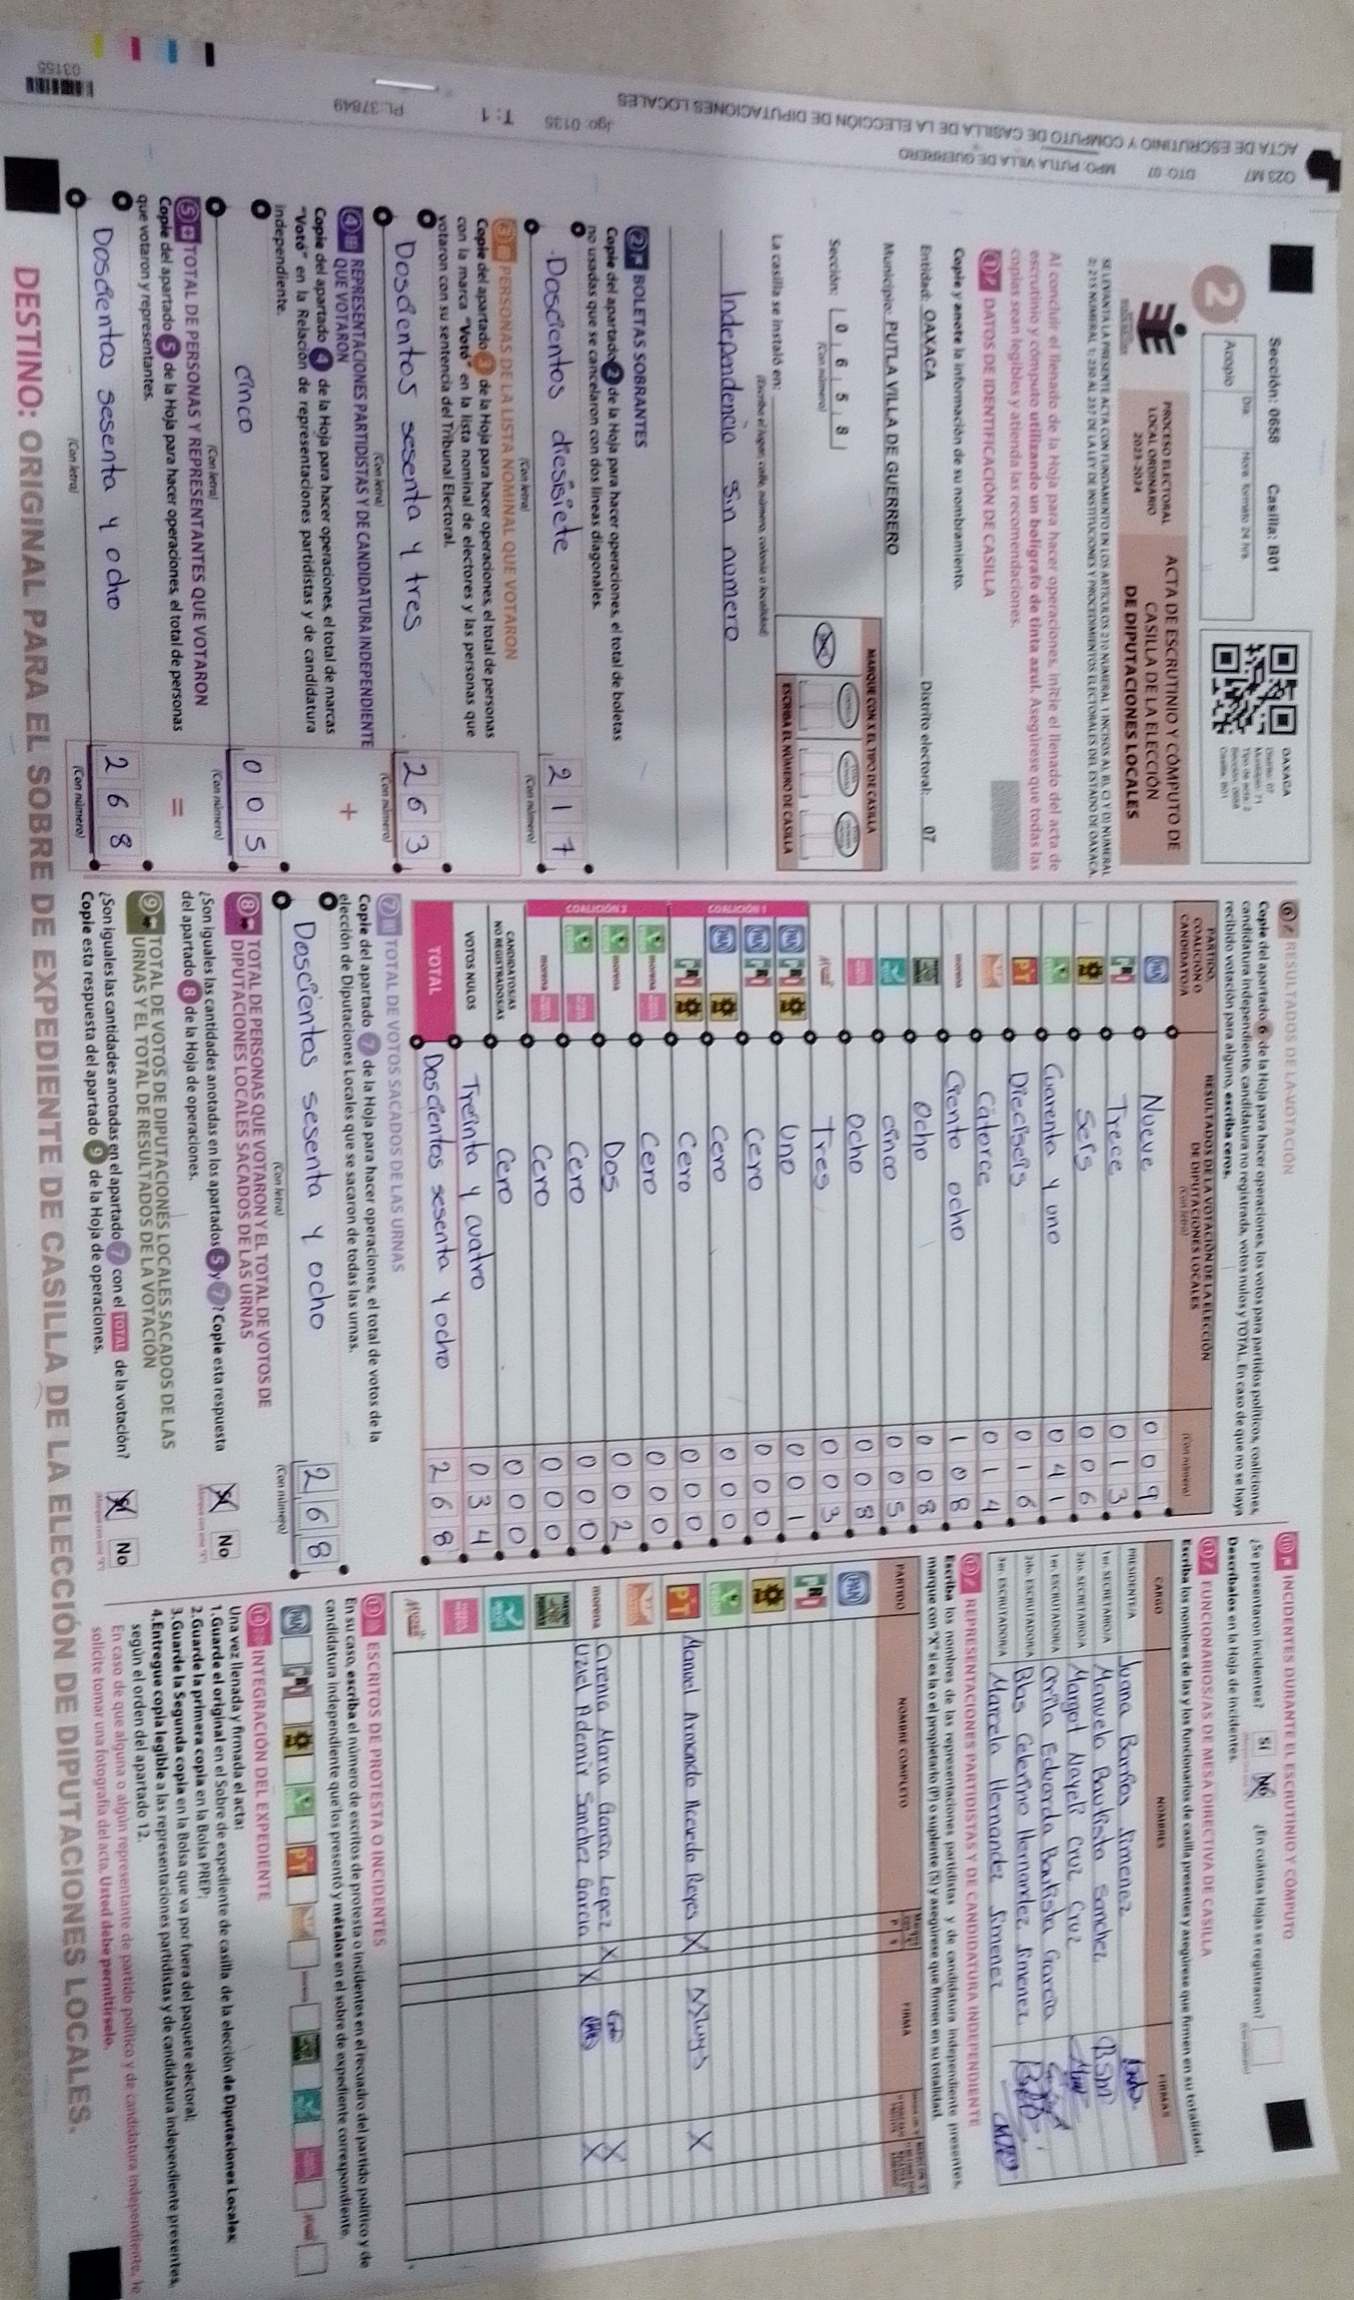 O23 M7 DTO: 07 MPO: PUTLA VILLA DE GUERRERO
ACTA DE ESCRUTINIO Y CÓMPUTO DE CASILLA DE LA ELECCIÓN DE DIPUTACIONES LOCALES
Jgo: 0135
T: 1
PL: 37849
03155
Sección: 0658 Casilla: B01
2
Día Hora formato 24 hrs
Acopio
OAXACA
Distrito: 07
Municipio: 71
Tipo de acta: 2
Sección: 0658
Casilla: B01
PROCESO ELECTORAL
LOCAL ORDINARIO
2023-2024
ACTA DE ESCRUTINIO Y CÓMPUTO DE
CASILLA DE LA ELECCIÓN
DE DIPUTACIONES LOCALES
SE LEVANTA LA PRESENTE ACTA CON FUNDAMENTO EN LOS ARTÍCULOS 210 NUMERAL 1 INCISOS A), B), C) Y D) NUMERAL
2; 215 NUMERAL 1; 230 AL 237 DE LA LEY DE INSTITUCIONES Y PROCEDIMIENTOS ELECTORALES DEL ESTADO DE OAXACA.
Al concluir el llenado de la Hoja para hacer operaciones, inicie el llenado del acta de
escrutinio y cómputo utilizando un bolígrafo de tinta azul. Asegúrese que todas las
copias sean legibles y atienda las recomendaciones.
1 DATOS DE IDENTIFICACIÓN DE CASILLA
Copie y anote la información de su nombramiento.
Entidad: OAXACA Distrito electoral: 07
Municipio: PUTLA VILLA DE GUERRERO
Sección: 0 6 5 8
(Con número)
MARQUE CON X EL TIPO DE CASILLA
ESCRIBA EL NÚMERO DE CASILLA
La casilla se instaló en:
(Escriba el lugar, calle, número, colonia o localidad)
Independencia Sin numero
2 BOLETAS SOBRANTES
Copie del apartado 2 de la Hoja para hacer operaciones, el total de boletas
no usadas que se cancelaron con dos líneas diagonales.
Doscientos diesisiete 2 1 7
(Con letra) (Con número)
3 PERSONAS DE LA LISTA NOMINAL QUE VOTARON
Copie del apartado 3 de la Hoja para hacer operaciones, el total de personas
con la marca "Votó" en la lista nominal de electores y las personas que
votaron con su sentencia del Tribunal Electoral.
Doscientos sesenta y tres 2 6 3
(Con letra) (Con número)
4 REPRESENTACIONES PARTIDISTAS Y DE CANDIDATURA INDEPENDIENTE
QUE VOTARON +
Copie del apartado 4 de la Hoja para hacer operaciones, el total de marcas
"Votó" en la Relación de representaciones partidistas y de candidatura
independiente.
cinco 0 0 5
(Con letra) (Con número)
5 TOTAL DE PERSONAS Y REPRESENTANTES QUE VOTARON =
Copie del apartado 5 de la Hoja para hacer operaciones, el total de personas
que votaron y representantes.
Doscientos sesenta y ocho 2 6 8
(Con letra) (Con número)
6 RESULTADOS DE LA VOTACIÓN
Copie del apartado 6 de la Hoja para hacer operaciones, los votos para partidos políticos, coaliciones,
candidatura independiente, candidatura no registrada, votos nulos y TOTAL. En caso de que no se haya
recibido votación para alguno, escriba ceros.
PARTIDO, COALICIÓN O CANDIDATO/A
RESULTADOS DE LA VOTACIÓN DE LA ELECCIÓN DE DIPUTACIONES LOCALES
(Con letra) (Con número)
PAN Nueve 0 0 9
PRI Trece 0 1 3
Seis 0 0 6
Cuarenta y uno 0 4 1
PT Dieciseis 0 1 6
Catorce 0 1 4
morena Ciento ocho 1 0 8
Ocho 0 0 8
cinco 0 0 5
Ocho 0 0 8
Tres 0 0 3
COALICIÓN 1
PAN PRI Uno 0 0 1
PAN PRI Cero 0 0 0
PAN Cero 0 0 0
PRI Cero 0 0 0
COALICIÓN 2
morena Cero 0 0 0
morena Dos 0 0 2
Cero 0 0 0
morena Cero 0 0 0
CANDIDATOS/AS NO REGISTRADOS/AS Cero 0 0 0
VOTOS NULOS Treinta y cuatro 0 3 4
TOTAL Doscientos sesenta y ocho 2 6 8
7 TOTAL DE VOTOS SACADOS DE LAS URNAS
Copie del apartado 7 de la Hoja para hacer operaciones, el total de votos de la
elección de Diputaciones Locales que se sacaron de todas las urnas.
Doscientos sesenta y ocho 2 6 8
(Con letra) (Con número)
8 TOTAL DE PERSONAS QUE VOTARON Y EL TOTAL DE VOTOS DE
DIPUTACIONES LOCALES SACADOS DE LAS URNAS
¿Son iguales las cantidades anotadas en los apartados 5 y 7? Copie esta respuesta
del apartado 8 de la Hoja de operaciones.
Sí No
9 TOTAL DE VOTOS DE DIPUTACIONES LOCALES SACADOS DE LAS
URNAS Y EL TOTAL DE RESULTADOS DE LA VOTACIÓN
¿Son iguales las cantidades anotadas en el apartado 7 con el TOTAL de la votación?
Copie esta respuesta del apartado 9 de la Hoja de operaciones.
Sí No
10 INCIDENTES DURANTE EL ESCRUTINIO Y CÓMPUTO
¿Se presentaron incidentes? Sí No ¿En cuántas Hojas se registraron?
Descríbalos en la Hoja de incidentes.
11 FUNCIONARIOS/AS DE MESA DIRECTIVA DE CASILLA
Escriba los nombres de las y los funcionarios de casilla presentes y asegúrese que firmen en su totalidad.
CARGO NOMBRES FIRMAS
PRESIDENTE/A Juana Barrios Jimenez
1er. SECRETARIO/A Manuela Bautista Sanchez BSM
2do. SECRETARIO/A Margot Nayeli Cruz Cruz
1er. ESCRUTADOR/A Cirila Eduarda Bautista Garcia
2do. ESCRUTADOR/A Blas Celerino Hernandez Jimenez
3er. ESCRUTADOR/A Marcela Hernandez Jimenez
12 REPRESENTACIONES PARTIDISTAS Y DE CANDIDATURA INDEPENDIENTE
Escriba los nombres de las representaciones partidistas y de candidatura independiente presentes,
marque con "X" si es la o el propietario (P) o suplente (S) y asegúrese que firmen en su totalidad.
PARTIDO NOMBRE COMPLETO P S FIRMA
PAN
PRI
PT Manuel Armando Acevedo Reyes X X
morena Cirenia Maria Garcia Lopez X X
Uziel Ademir Sanchez Garcia X X
13 ESCRITOS DE PROTESTA O INCIDENTES
En su caso, escriba el número de escritos de protesta o incidentes en el recuadro del partido político y de
candidatura independiente que los presentó y métalos en el sobre de expediente correspondiente.
PAN PRI PT
14 INTEGRACIÓN DEL EXPEDIENTE
Una vez llenada y firmada el acta:
1.Guarde el original en el Sobre de expediente de casilla de la elección de Diputaciones Locales;
2.Guarde la primera copia en la Bolsa PREP;
3.Guarde la Segunda copia en la Bolsa que va por fuera del paquete electoral;
4.Entregue copia legible a las representaciones partidistas y de candidatura independiente presentes,
según el orden del apartado 12.
En caso de que alguna o algún representante de partido político y de candidatura independiente, le
solicite tomar una fotografía del acta, Usted debe permitírselo.
DESTINO: ORIGINAL PARA EL SOBRE DE EXPEDIENTE DE CASILLA DE LA ELECCIÓN DE DIPUTACIONES LOCALES.